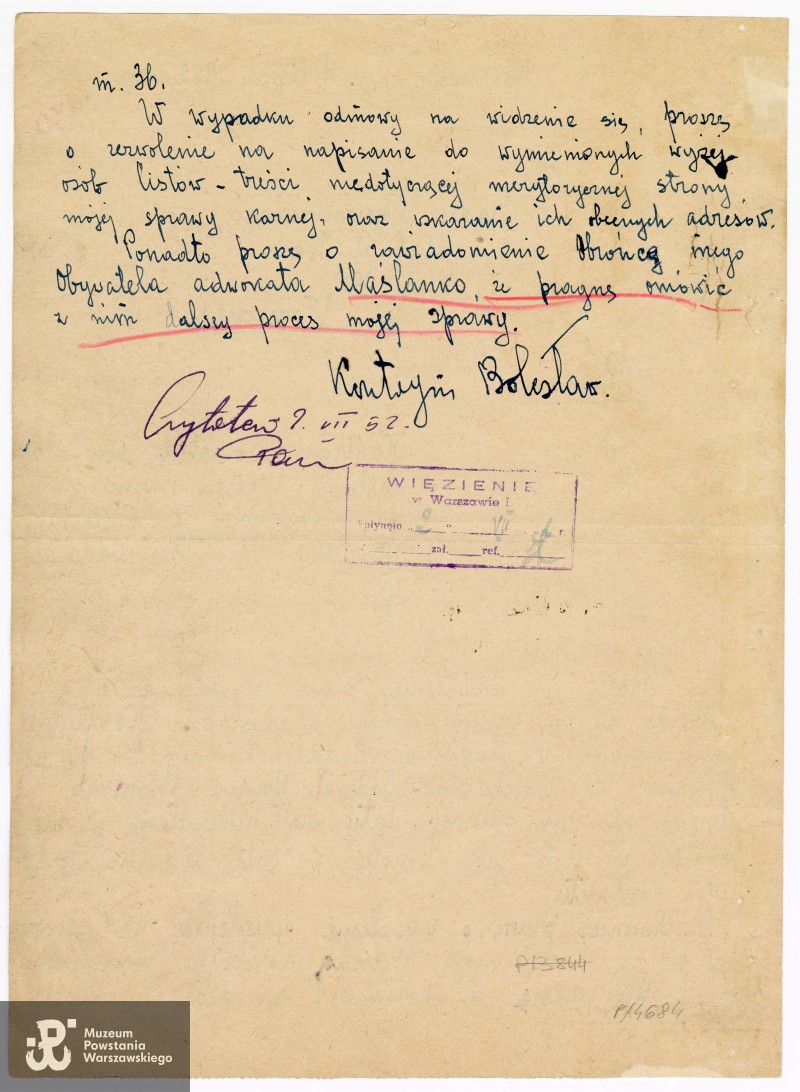 m. 36.
W wypadku odmowy na widzenie się, proszę
o zezwolenie na napisanie do wymienionych wyżej
osób listów - treści niedotyczącej merytorycznej strony
mojej sprawy karnej, oraz wskazanie ich obecnych adresów.
Ponadto proszę o zawiadomienie Obrońcę mego
Obywatela adwokata Maślanko, że pragnę omówić
z nim dalszy proces mojej sprawy.
Kontrym Bolesław.
Czytałem 2. VII 52.
WIĘZIENIE
w Warszawie I
Wpłynęło „ 2 “ VII r
zał. ref.
P/3844
P/4684
Muzeum
Powstania
Warszawskiego